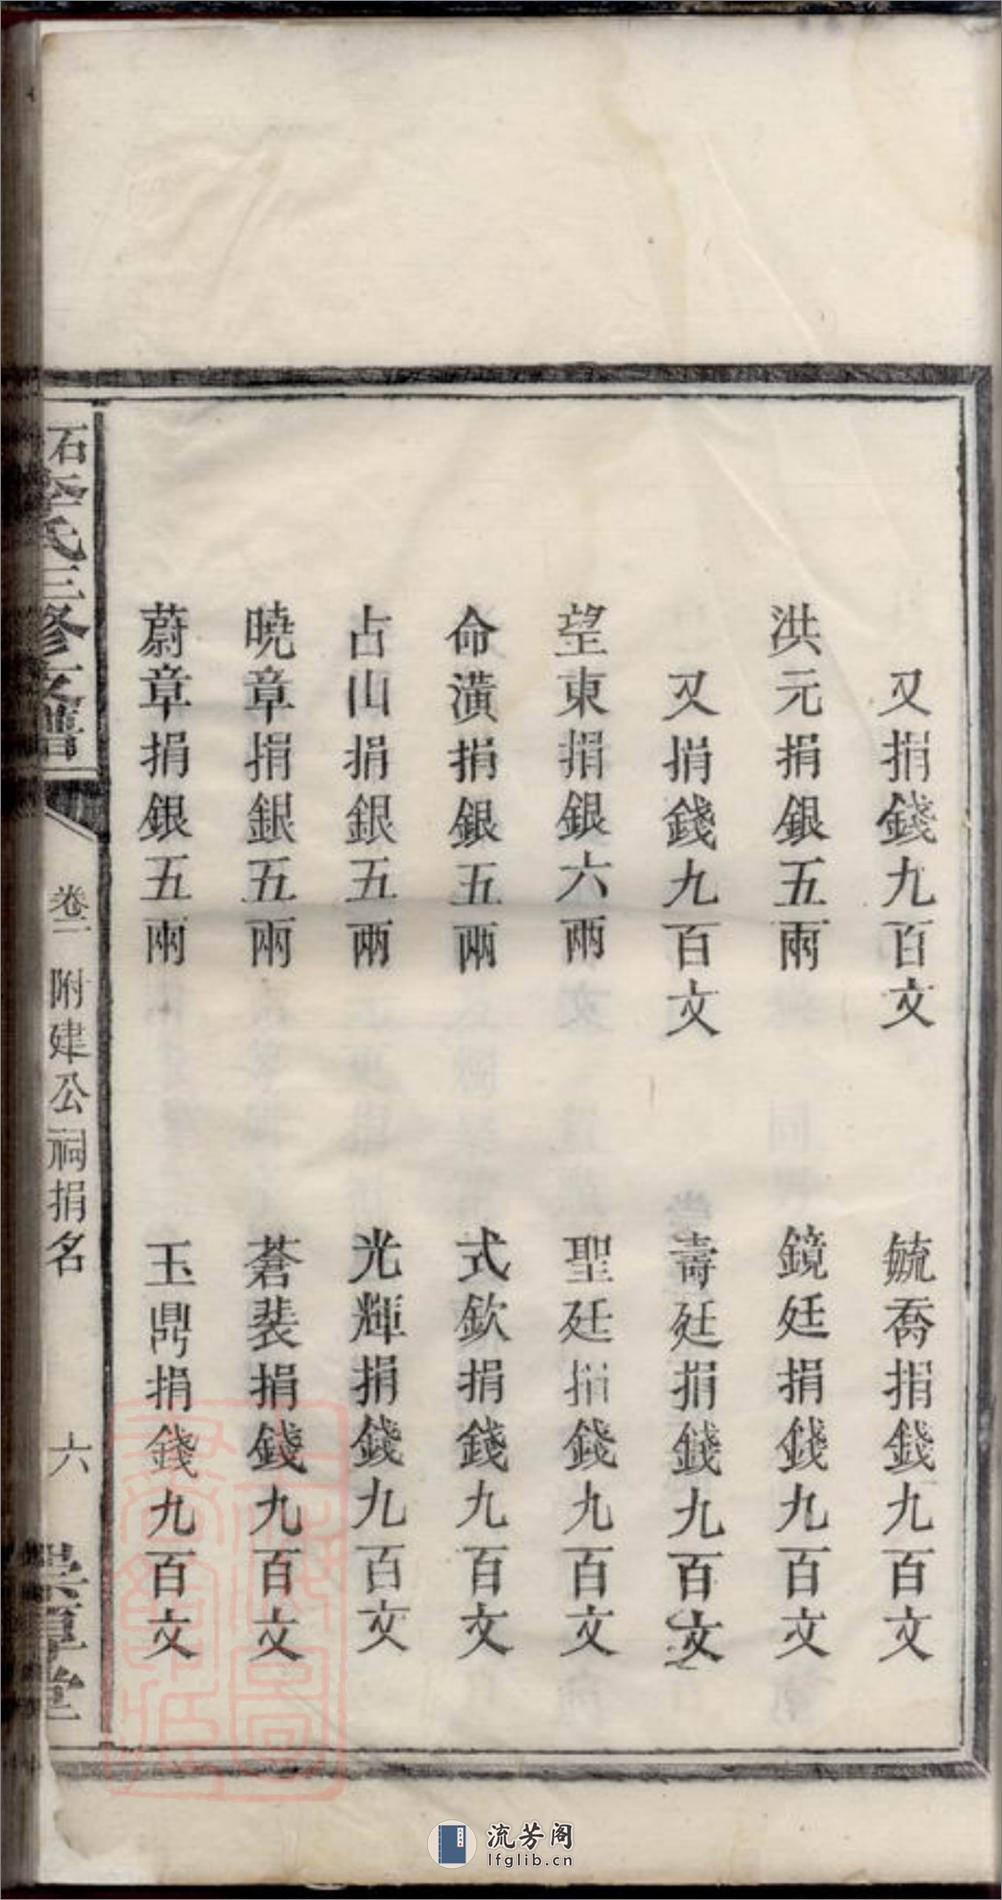 又捐錢九百文
毓喬捐錢九百文
洪元捐銀五兩
鏡廷捐錢九百文
又捐錢九百文
壽廷捐錢九百文
望東捐銀六兩
聖廷捐錢九百文
命潢捐銀五兩
式欽捐錢九百文
占山捐銀五兩
光輝捐錢九百文
曉章捐銀五兩
蒼裴捐錢九百文
蔚章捐銀五兩
玉鼎捐錢九百文
石李氏三修支譜
卷二 附建公祠捐名
六
堂
流芳阁
lfglib.cn